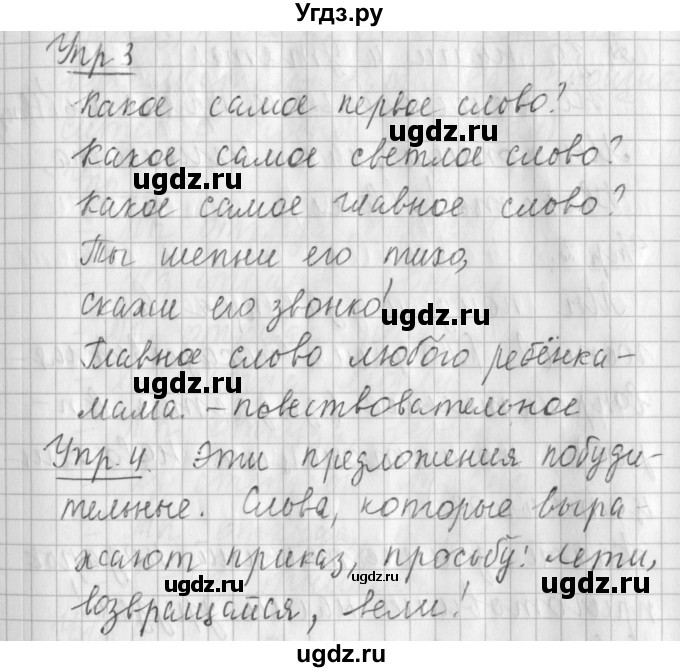 Угдз.ру
Упр 3
Какое самое первое слово?
ugdz.ru
Какое самое светлое слово?
ugdz.ru
Какое самое главное слово?
Ты шепни его тихо,
скажи его звонко!
ugdz.ru
Главное слово любого ребёнка -
ugdz.ru
мама. - повествовательное
Упр. 4. Эти предложения побуди-
ugdz.ru
тельные. Слова, которые выра-
жают приказ, просьбу: лети,
ugdz.ru ugdz.ru ugdz.ru
возвращайся, вели!
ugdz.ru